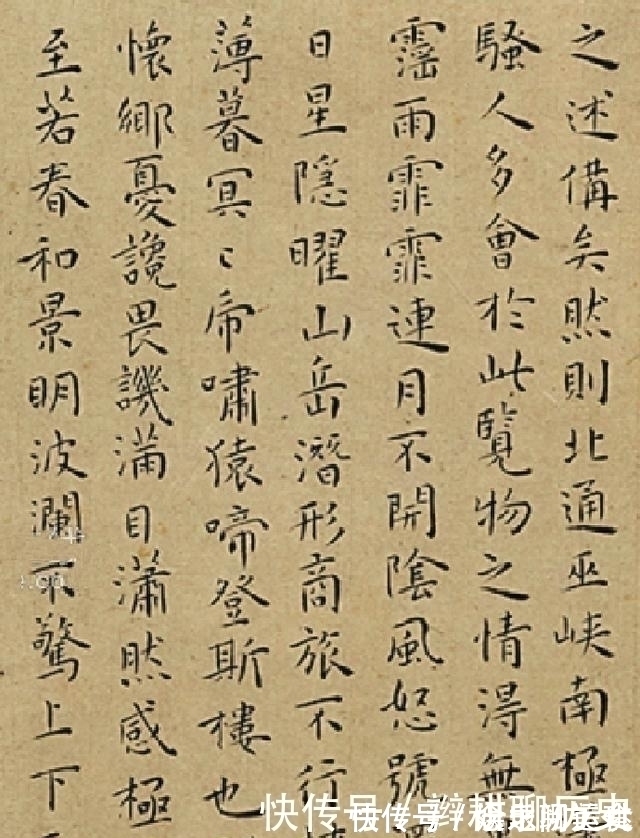 之述備矣然則北通巫峽南極
騷人多會於此覽物之情得無
霪雨霏霏連月不開陰風怒號
日星隱曜山岳潛形商旅不行
薄暮冥〻乕嘯猿啼登斯樓也
懷鄉憂讒畏譏滿目瀟然感極
至若春和景明波瀾不驚上下
快传号/